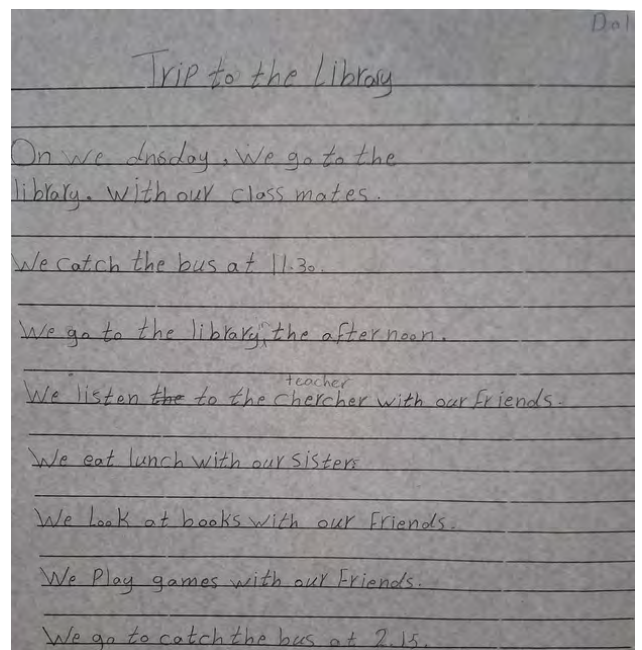 Trip to the Library
On we dnsday, we go to the
library. with our class mates.
We catch the bus at 11.30.
We go to the library, the afternoon.
teacher
We listen the to the chercher with our friends.
We eat lunch with our sisters
We Look at books with our friends.
We Play games with our Friends.
We go to catch the bus at 2.15.